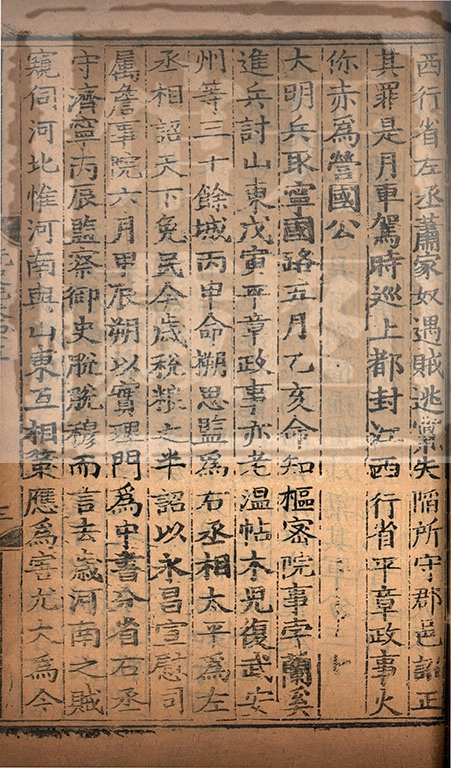 西行省左丞蕭家奴遇賊逃竄失陷所守郡邑詔正
其罪是月車駕時巡上都封江西行省平章政事火
你赤為營國公
大明兵取寧國路五月乙亥命知樞密院事孛蘭奚
進兵討山東戊寅平章政事亦老溫帖木兒復武安
州等三十餘城丙申命搠思監為右丞相太平為左
丞相詔天下免民今歲稅粮之半詔以永昌宣慰司
属詹事院六月甲辰朔以實理門為中書分省右丞
守濟寧丙辰監察御史脫脫穆而言去歲河南之賊
窺伺河北惟河南與山東互相策應為害尤大為今